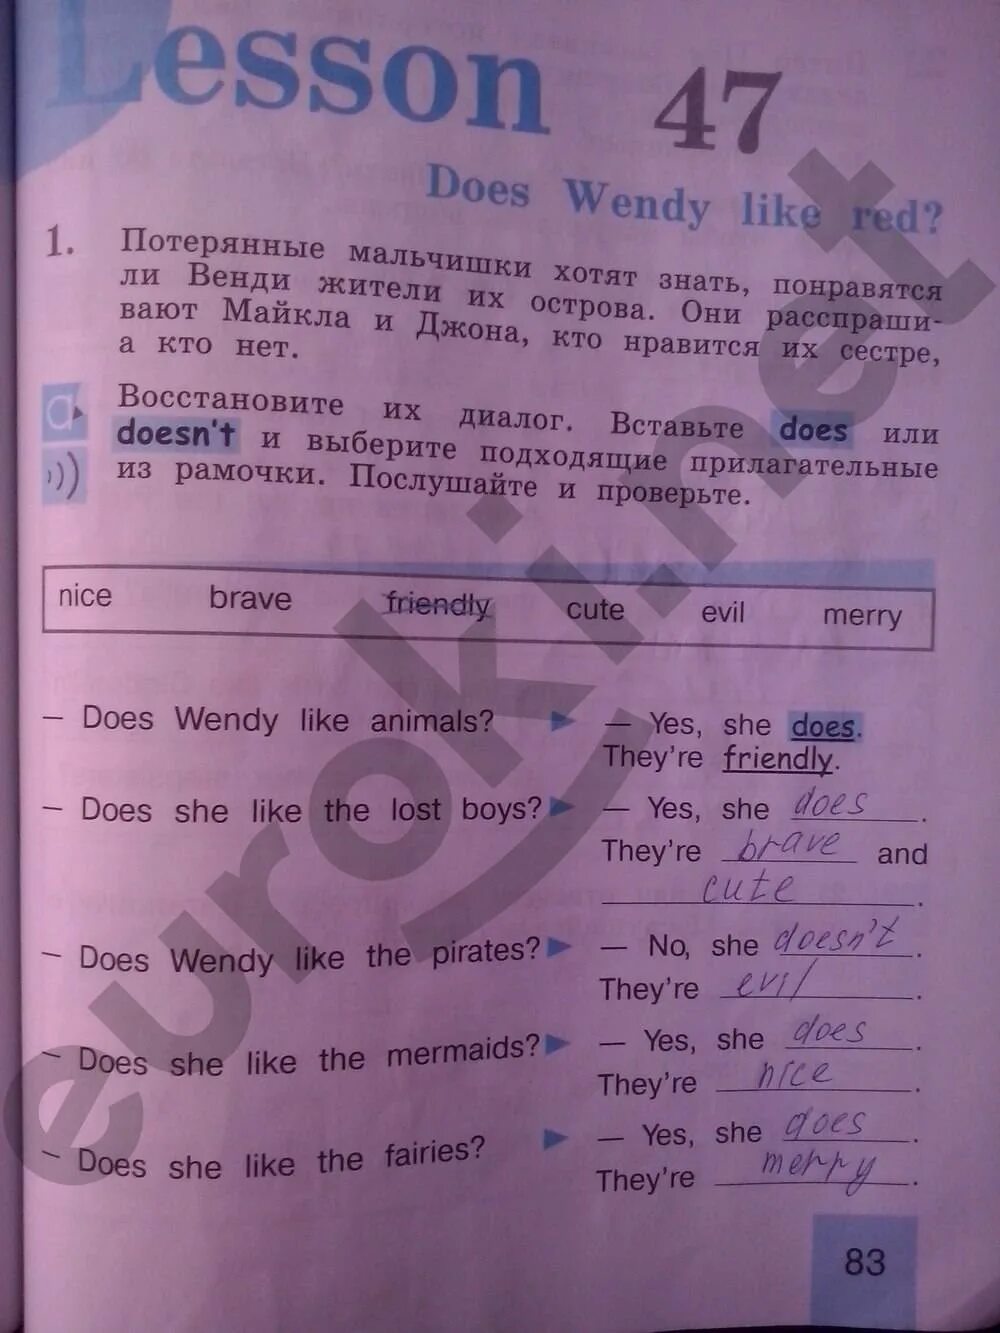 Lesson 47
Does Wendy like red?
1. Потерянные мальчишки хотят знать, понравятся
ли Венди жители их острова. Они расспраши-
вают Майкла и Джона, кто нравится их сестре,
а кто нет.
Восстановите их диалог. Вставьте does или
doesn't и выберите подходящие прилагательные
из рамочки. Послушайте и проверьте.
nice brave friendly cute evil merry
– Does Wendy like animals? – Yes, she does.
They're friendly.
– Does she like the lost boys? – Yes, she does.
They're brave and
cute.
– Does Wendy like the pirates? – No, she doesn't.
They're evil.
– Does she like the mermaids? – Yes, she does.
They're nice.
– Does she like the fairies? – Yes, she does.
They're merry.
83
euroki.net